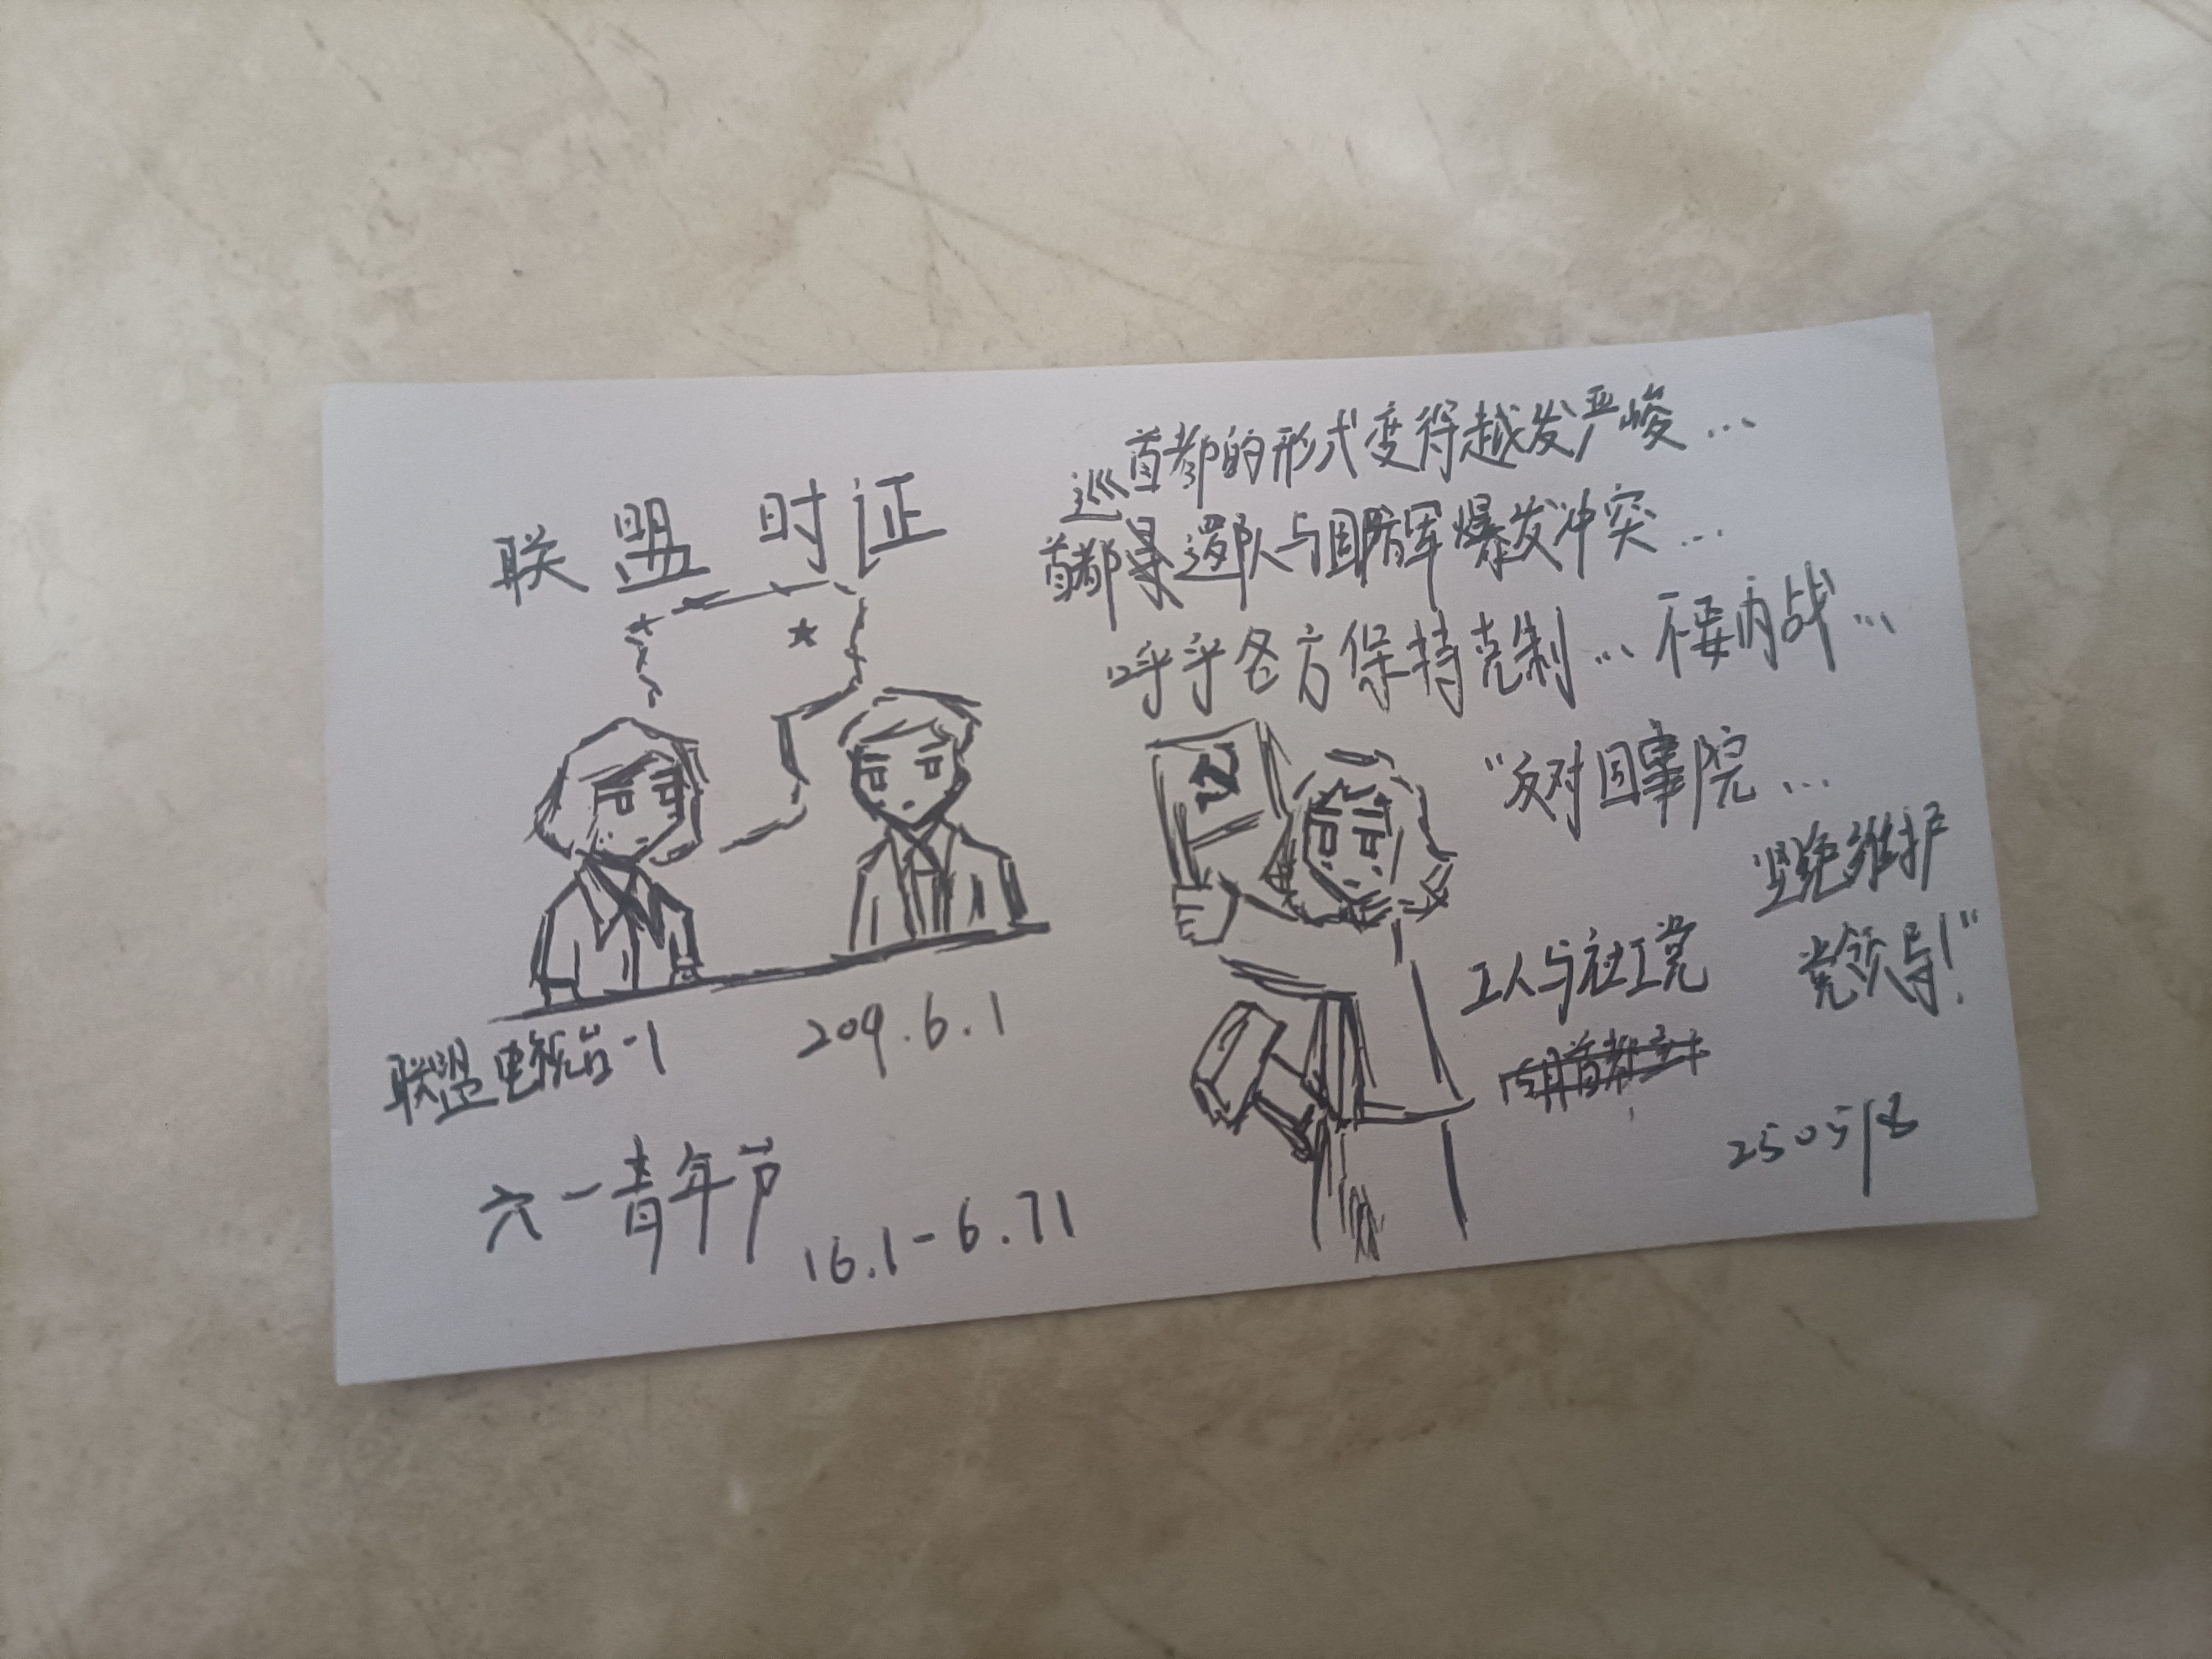 联盟 时证
联盟电视台-1
209.6.1
六一青年节
16.1-6.71
首都的形式变得越发严峻...
巡
首都 逻队与国防军爆发冲突...
呼乎各方保持克制...不要内战...
"反对国事院...
坚绝维护
党领导!"
工人与社工党